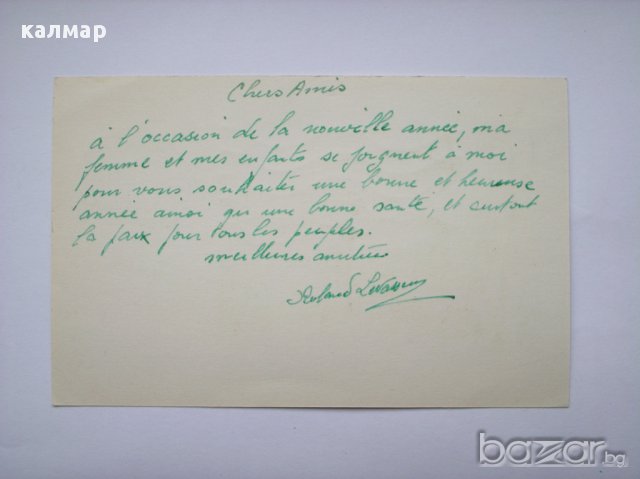 калмар
Chers Amis
à l'occasion de la nouvelle année, ma
femme et mes enfants se joignent à moi
pour vous souhaiter une bonne et heureuse
année ainsi qu une bonne santé, et surtout
la paix pour tous les peuples.
meilleures amitiés
Roland
bazar.bg